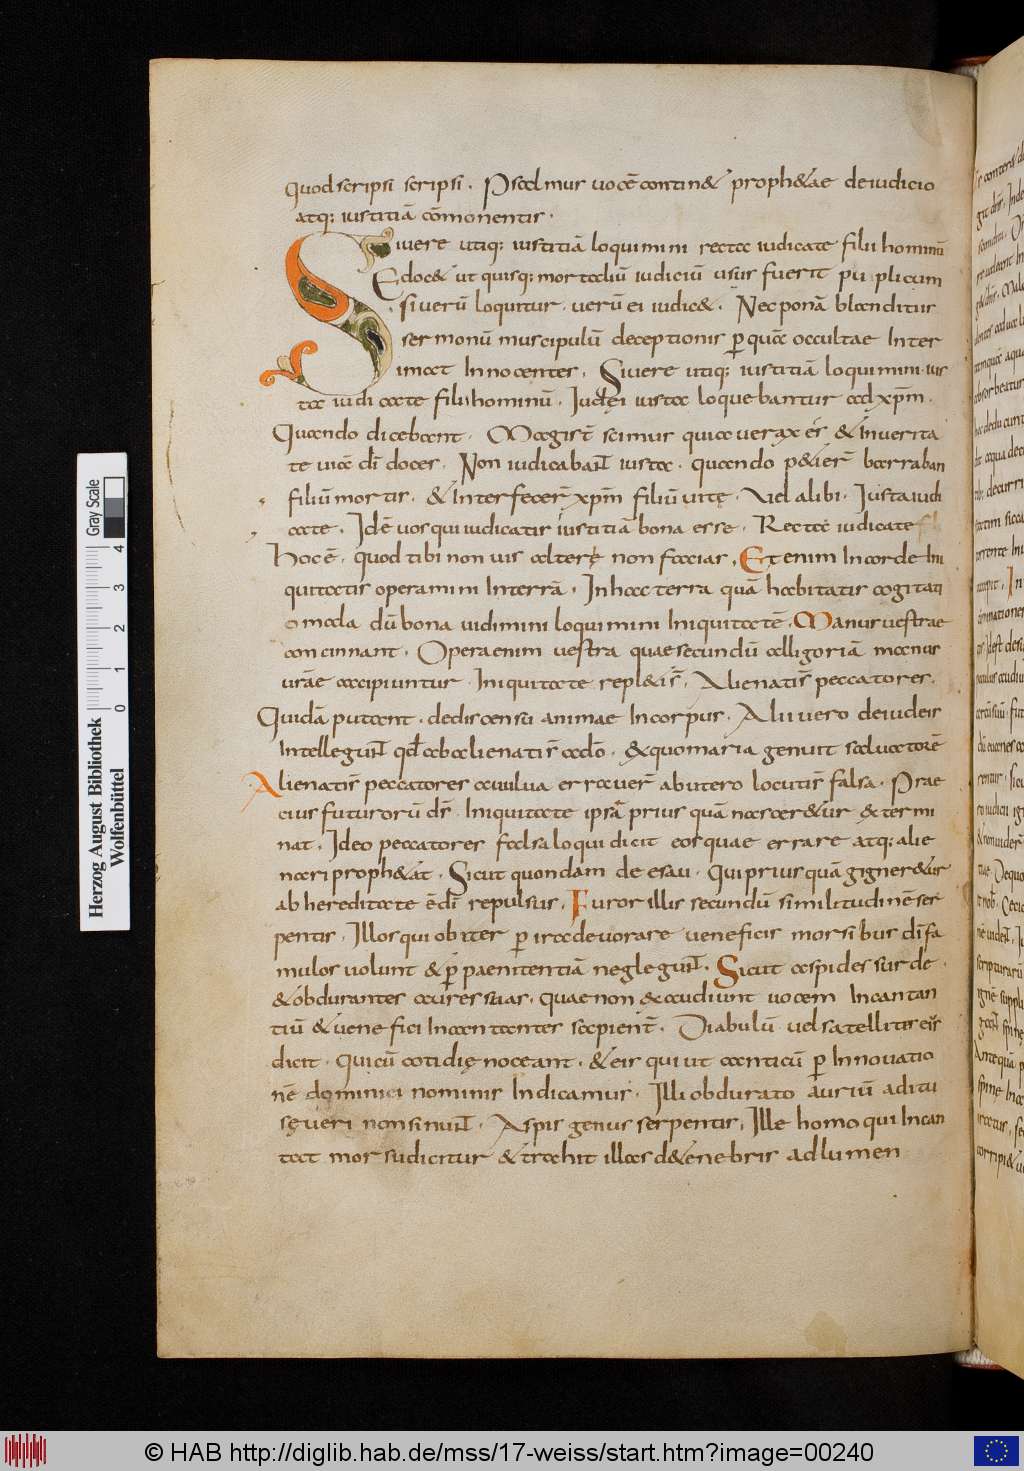 quod scripsi scripsi. Psalmus uocē contin& proph&ae deiudicio
atq: iustitiā cōmonentis.
Si uere utiq: iustitiā loquimini recta iudicate filii hominū
Edoc& ut quisq: mortaliū iudiciū usus fuerit pu plicum
si uerū loquitur. uerū ei iudic&. Nec ponā blanditiis
sermonū muscipulū deceptionis p̱ quā occultae Inter
imat Innocentes. Si uere utiq: iustitiā loquimini. ius
ta iudicate filii hominū. Iudęi iusta loquebantur ad xp̄m.
Quando dicebant. Magist̄ scimus quia uerax es & Inuerita
te uiā dī doces. Non iudicabaNt iusta. quando p&ier̄ barraban
filiū mortis. & Interfecer̄ xp̄m filiū uitę. Vel alibi. Iusta iudi
cate. Idē uos qui iudicatis iustitiā bona esse. Recta iudicate
Hoc ē. quod tibi non uis alterę non facias. Etenim Incorde Ini
quitatis operamini Interrā. Inhac terra quā habitatis cogitati
omoda dū bona uidimini loquimini Iniquitatē. Manus uestrae
concinnant. Opera enim uestra quae secundū alligoriā manus
urāe accipiuntur. Iniquitate repl&i s̄. Alienatis̄ peccatores.
Quidā putant. de discensu animae In corpus. Alii uero deiudeis
IntelleguNt qd̄ aba alienatis̄ ad̄o. & quo maria genuit saluatorē
Alienatis̄ peccatores auulua errauer̄ ab utero locutis̄ falsa. Prae
cius futurorū ds̄. Iniquitate ipsā prius quā nascer&ur & termi
nat. Ideo peccatores falsa loqui dicit eos quae errare atq: alie
nari proph&at. Sicut quondam de esau. Qui prius quā gigner&ur
ab hereditate ē dī repulsus. Furor illis secundū similitudinē ser
pentis. Illos qui obiter p̱ ira deuorare ueneficis morsibus dī fa
mulos uolunt & p̱ paenitentiā negleguNt. Sicut aspides surde.
& obdurantes aures suas. quae non & audiunt uocem Incantan
tiū & uenefici Incantantes sapient̄. Diabulū uel satellitis eis
dicit. qui cū cotidię noceant. & eis qui ut canticū p̱ Innouatio
nē dominici nominis Indicamus. Illi obdurato auriū aditu
sę ueri nonsinuNt. Aspis genus serpentis. Ille homo qui Incan
tat mor sudicitur & trahit illas d&enebris adlumen
Herzog August Bibliothek
Wolfenbüttel
0 1 2 3 4
Gray Scale
© HAB http://diglib.hab.de/mss/17-weiss/start.htm?image=00240